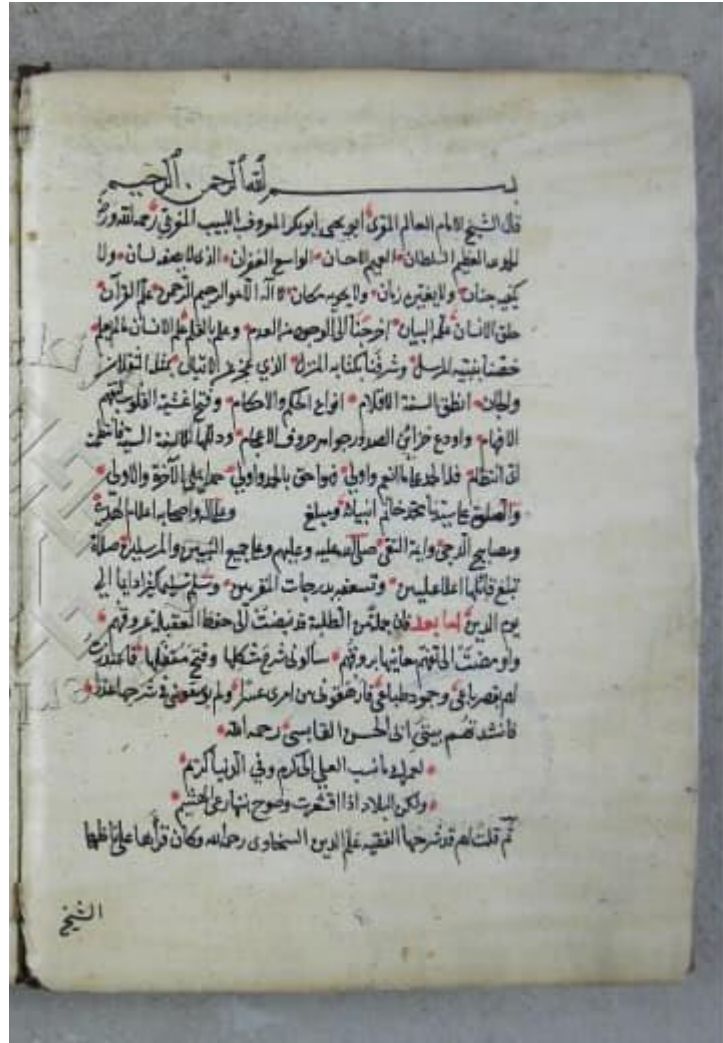 بسم الله الرحمن الرحيم
قال الشيخ الامام العالم المقرئ ابو يحيى ابو بكر المعروف باللبيب التونسي رحمه الله
العظيم السلطان العميم الاحسان الواسع الغفران الذي لا يصفه لسان ولا
يكيفه جنان ولا يغيره زمان ولا يحويه مكان لا اله الا هو الرحيم الرحمن علم القرآن
خلق الانسان علمه البيان اخرجنا الى الوجود من العدم وعلم بالقلم علم الانسان ما لم يعلم
خصنا بنبيه المرسل وشرفنا بكتابه المنزل الذي عجز عن الاتيان بمثله الثقلان
والجان انطق السنة الاقلام انواع الحكم والاحكام وفتح اغشية القلوب
الافهام واودع خزائن الصدور جواهر حروف الاعجام وذللها لالسنة
اي انتظام فله الحمد على ما انعم واولى فهو احق بالحمد واولى حمد يلي بالآخرة والاولى
والصلوة على سيدنا محمد خاتم انبيائه ومبلغ وعلى اله واصحابه اعلام الهدى
ومصابيح الدجى وائمة التقى صلى الله عليه وعليهم وعلى جميع النبيين والمرسلين صلاة
تبلغ قائلها اعلا عليين وتسعفه بدرجات المقربين وسلم تسليما كثيرا دايما الى
يوم الدين اما بعد فان جملة من الطلبة قد نبضت الى حفظ العقيلة عروقهم
واومضت الى تفهم معانيها بروقهم سألوني شرح مشكلها وفتح مقفلها فاعتذرت
لهم بقصر باعي وجمود طباعي فارهقوني من امري عسرا ولم يوسعوني في شرحها عذرا
فانشدتهم بيتي ابي الحسن القابسي رحمه الله
لعمرك ما نسب المعلى الى كرم وفي الدنيا كريم
ولكن البلاد اذا اقشعرت وصوح نبتها رعي الهشيم
ثم قلت لهم قد شرحها الفقيه علم الدين السخاوي رحمه الله وكان قرأها على ناظمها
الشيخ